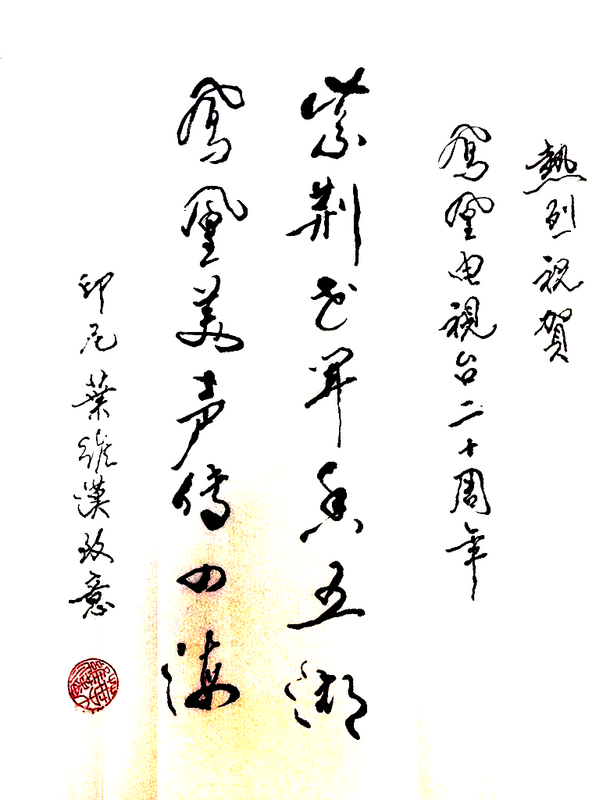 熱烈祝賀
鳳凰电視台二十周年
紫荆花开香五湖
鳳凰美声传四海
印尼葉維漢致意